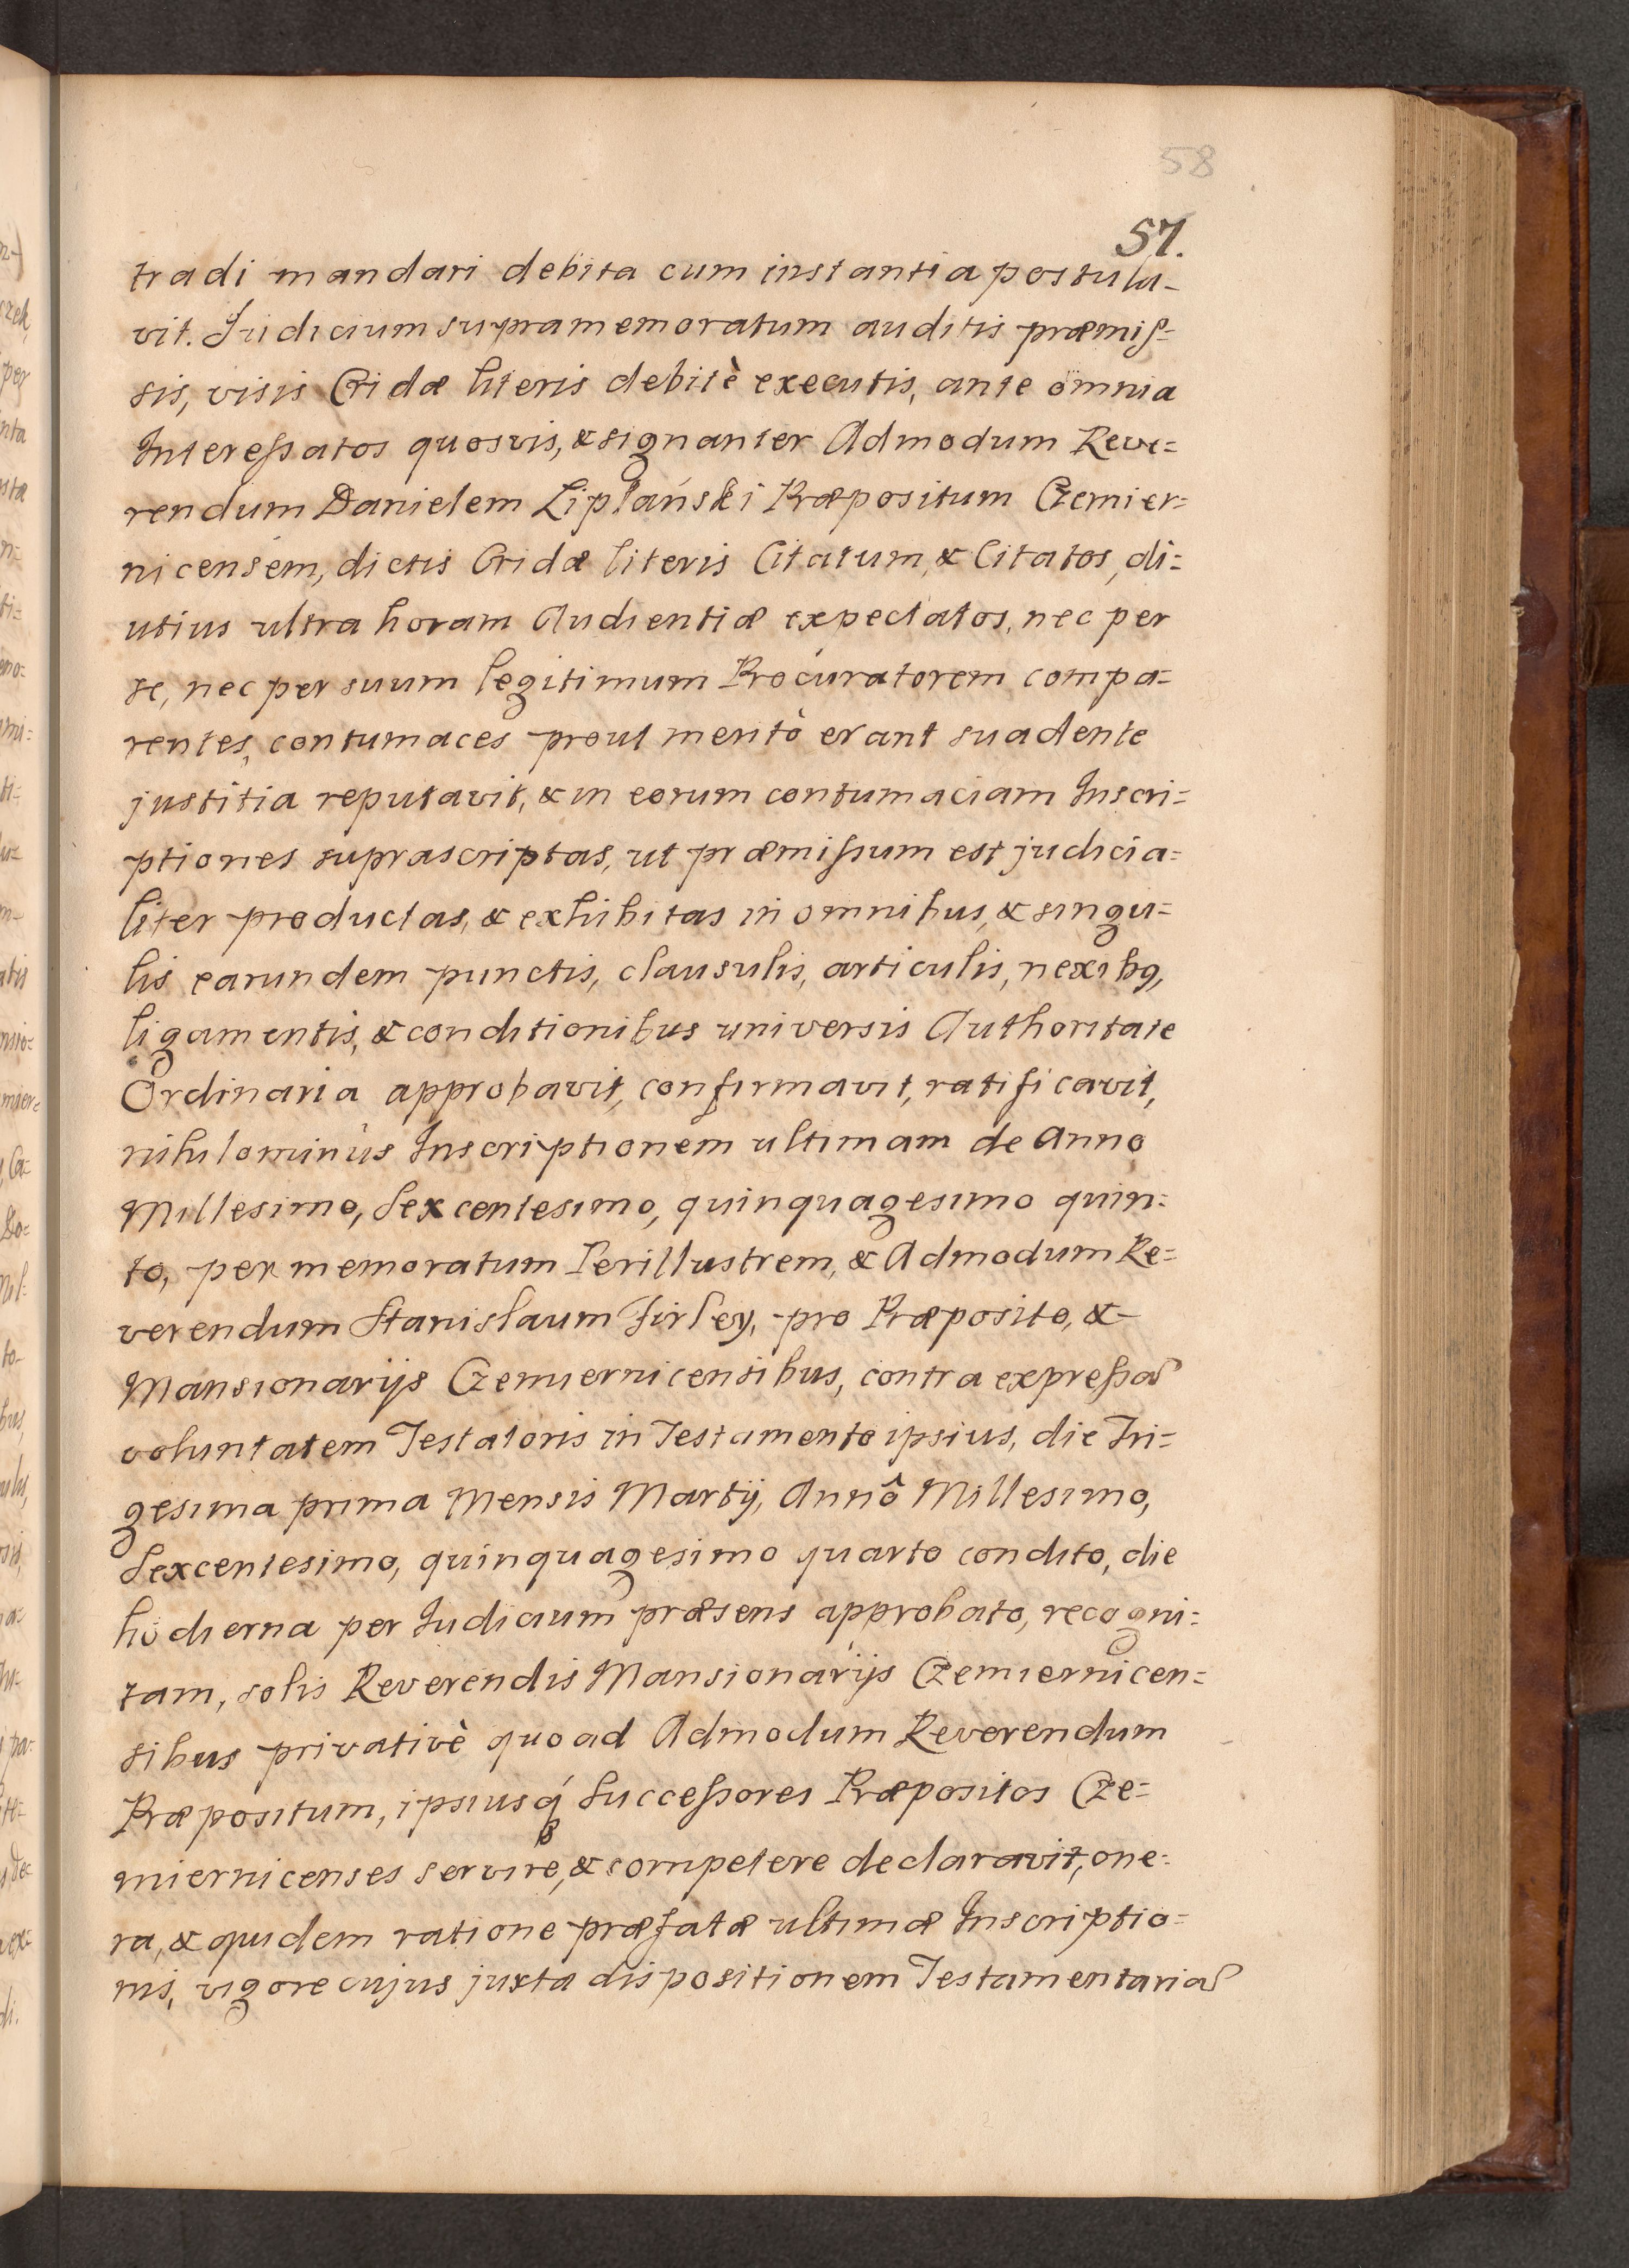 58
57.
tradi mandari debita cum instantia postula-
vit. Judicium supramemoratum auditis præmiſ=
sis, visis Cridæ literis debitè executis, ante omnia
Intereſsatos quosvis, & signanter Admodum Reve=
rendum Danielem Liplański Præpositum Czemier=
nicensem, dictis Cridæ literis Citatum, & Citatos, di=
utius ultra horam Audientiæ expectatos, nec per
se, nec per suum legitimum Procuratorem compa=
rentes, contumaces prout meritò erant suadente
justitia reputavit, & in eorum contumaciam Inscri=
ptiones suprascriptas, ut præmiſsum est judicia=
liter productas, & exhibitas in omnibus, & singu=
lis earundem punctis, clausulis, articulis, nexibꝯ,
ligamentis, & conditionibus universis Authoritate
Ordinaria approbavit, confirmavit, ratificavit,
nihilominùs Inscriptionem ultimam de Anno
Millesimo, Sexcentesimo, quinquagesimo quin=
to, per memoratum Perillustrem, & Admodum Re=
verendum Stanislaum Firley, pro Præposito, &
Mansionarijs Czemiernicensibus, contra expreſsã
voluntatem Testatoris in Testamento ipsius, die Tri=
gesima prima Mensis Martij, Annô Millesimo,
Sexcentesimo, quinquagesimo quarto condito, die
hodierna per Judicium præsens approbato, recogni=
tam, solis Reverendis Mansionarijs Czemiernicen=
sibus privativè quoad Admodum Reverendum
Præpositum, ipsiusq́ Succeſsores Præpositos Cze=
miernicenses servire, & competere declaravit, one=
ra, & quidem ratione præfatæ ultimæ Inscriptio=
nis, vigore cujus juxta dispositionem Testamentariã